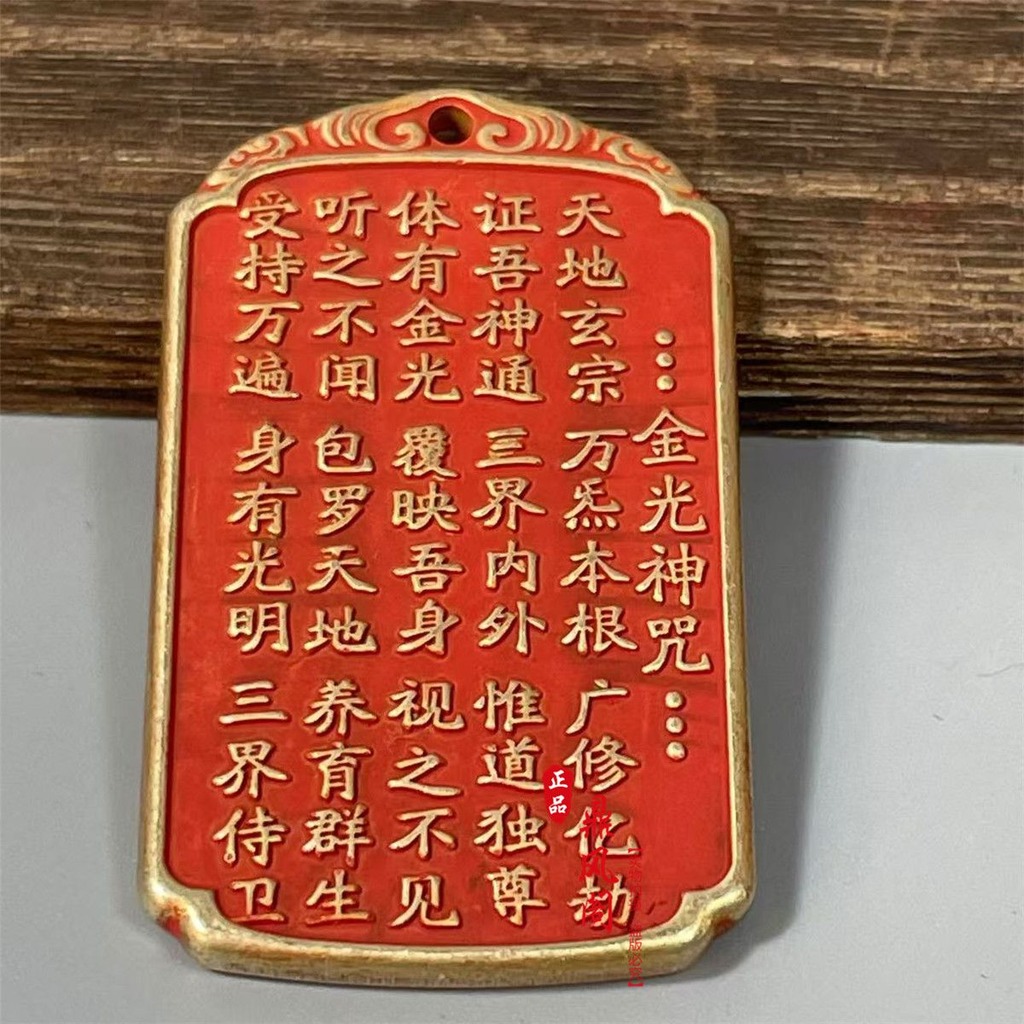 金光神咒
天地玄宗 万炁本根 广修亿劫
证吾神通 三界内外 惟道独尊
体有金光 覆映吾身 视之不见
听之不闻 包罗天地 养育群生
受持万遍 身有光明 三界侍卫
正品